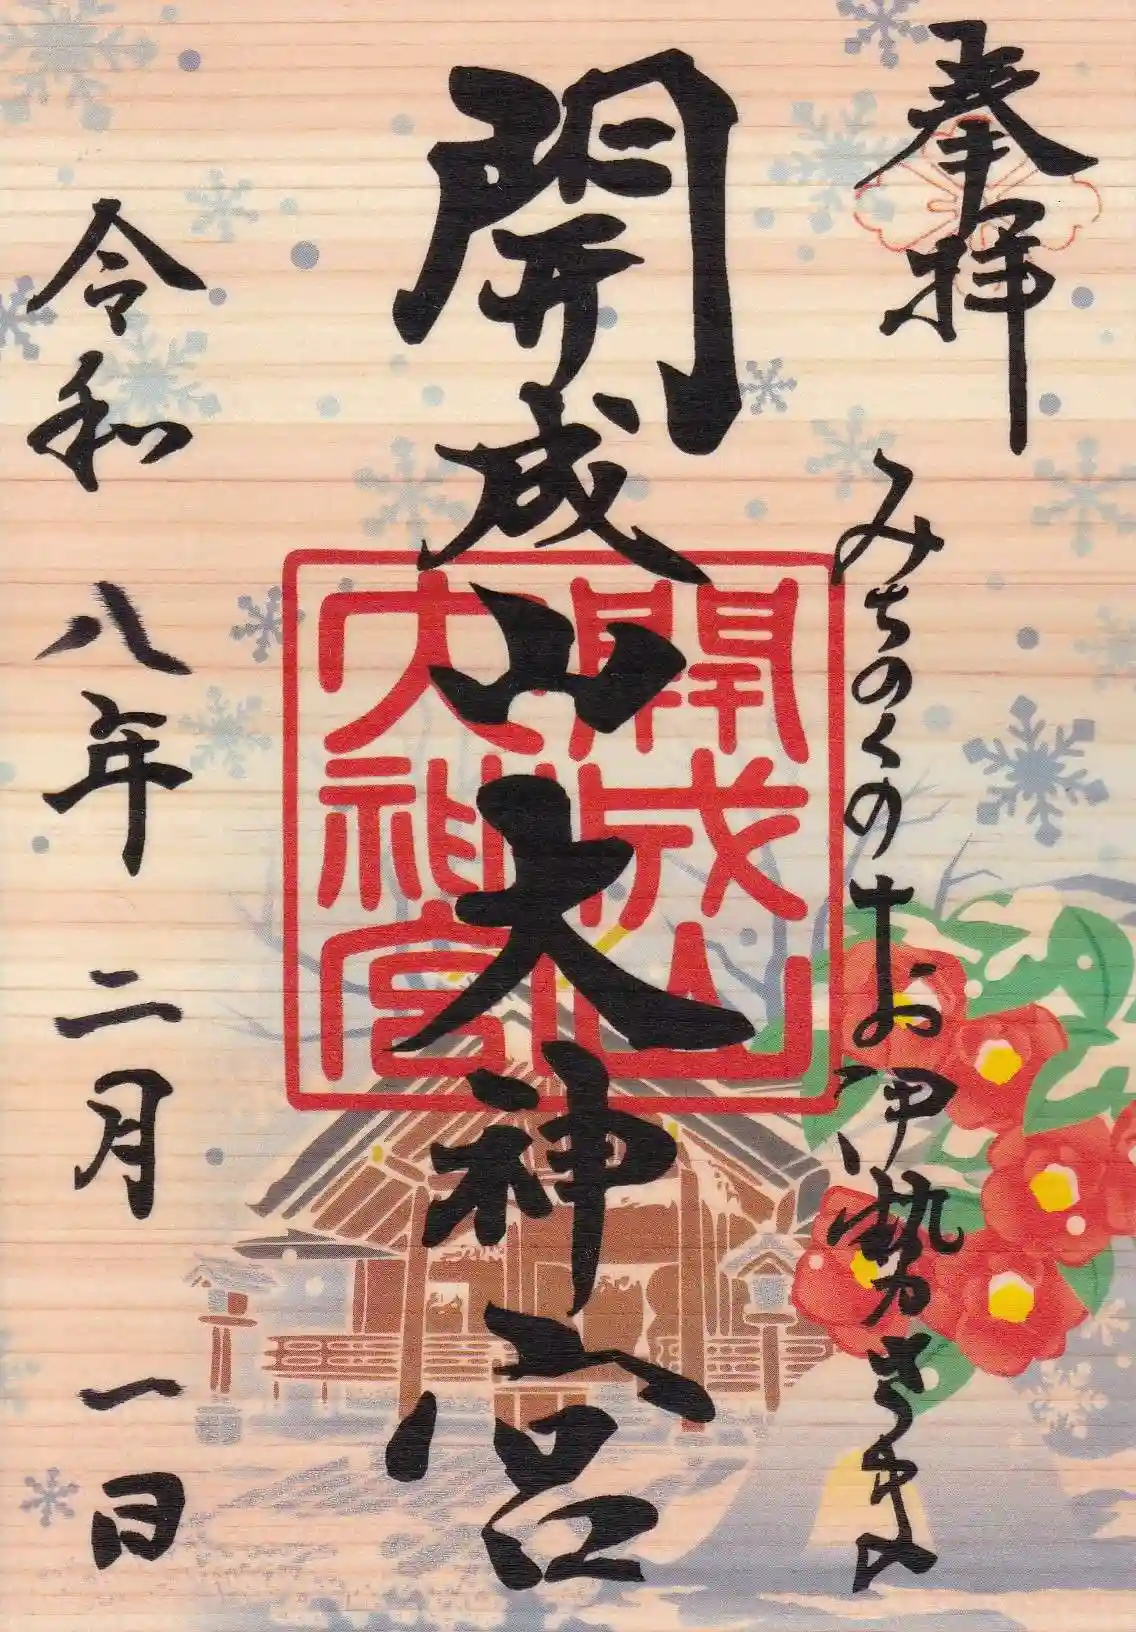 奉拝
みちのくのおお伊勢さま
開成山大神宮
開成山
大神宮
令和八年二月一日